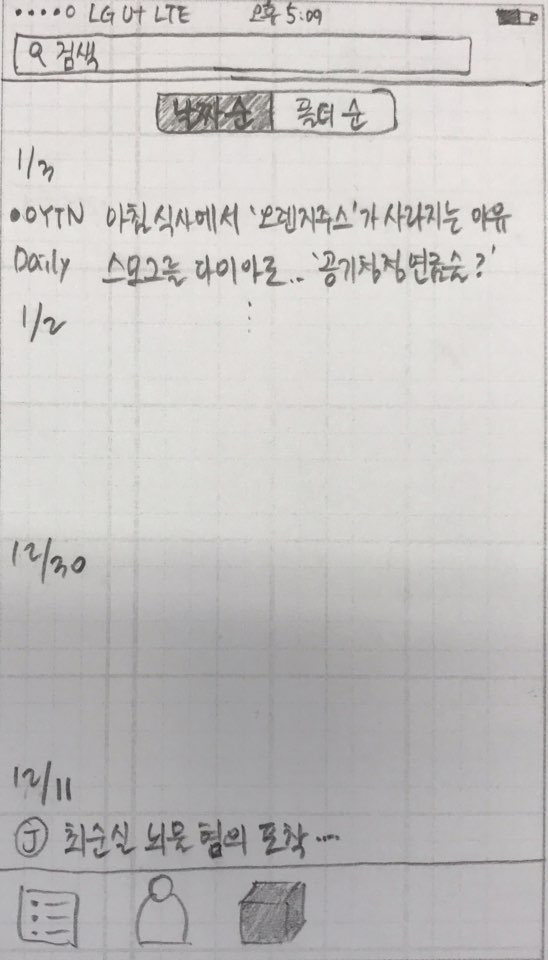 LG U+ LTE 오후 5:09
검색
날짜순 플터 순
1/3
YTN 아침 식사에서 '오렌지주스'가 사라지는 이유
Daily 스모그를 다이아로.. '공기청정연금술?'
1/2
12/30
12/11
J 최순실 뇌물 혐의 포착 ...